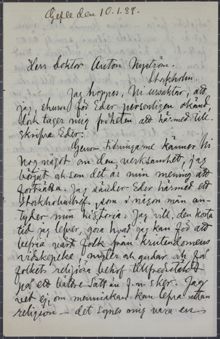 Gefle den 10.1.89.
Herr Doktor Anton Nyström.
Stockholm.
Jag hoppas, Ni ursäktar, att
jag, ehuru för Eder personligen okänd,
dock tager mig friheten att härmed till-
skrifva Eder.
Genom tidningarne känner Ni
nog något om den verksamhet, jag
börjat och som det är min mening att
fortsätta. Jag sänder Eder härmed ett
Stockholms, som i någon mån an-
tyder min historia. Jag vill, den korta
tid jag lefver, göra hvad jag kan för att
befria vårt folk från kristendomens
vidskepliga och gudar och få
folkets religiösa behof tillfredsstäldt
på ett bättre sätt än f. n. sker. Jag
vet ej, om menniskan kan lefva utan
religion — det synes mig vara en